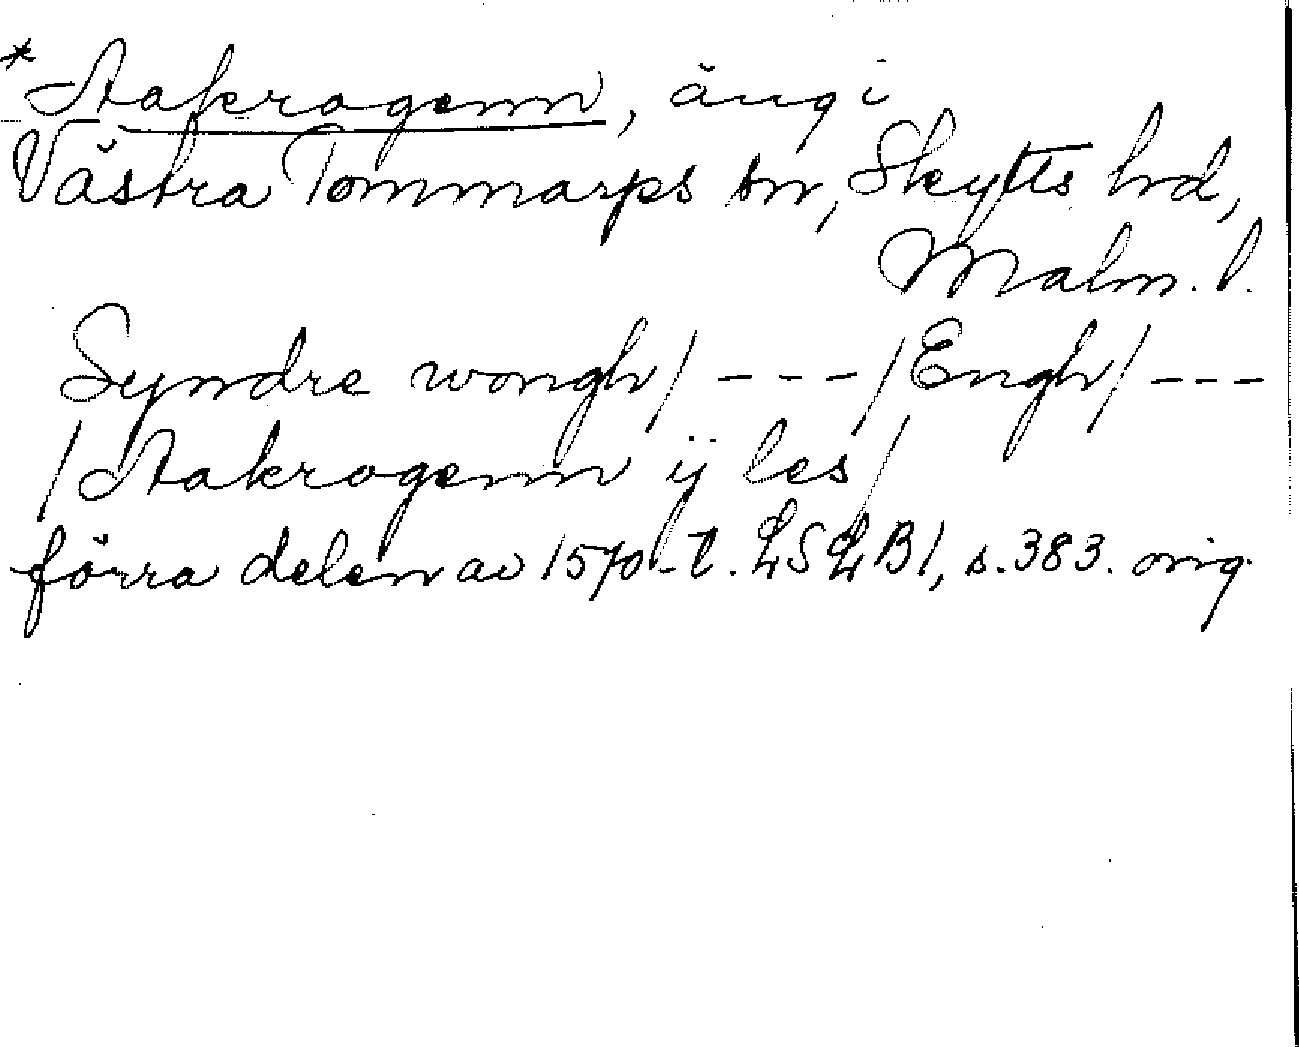 *Stakrogenn, äng i
Västra Tommarps sn, Skytts hrd,
Malm. l.
Syndre wongh/ ---/Engh/ ---
/Stakrogenn ÿ les/
förra delen av 1570-t. LSLB1, s. 383. orig.